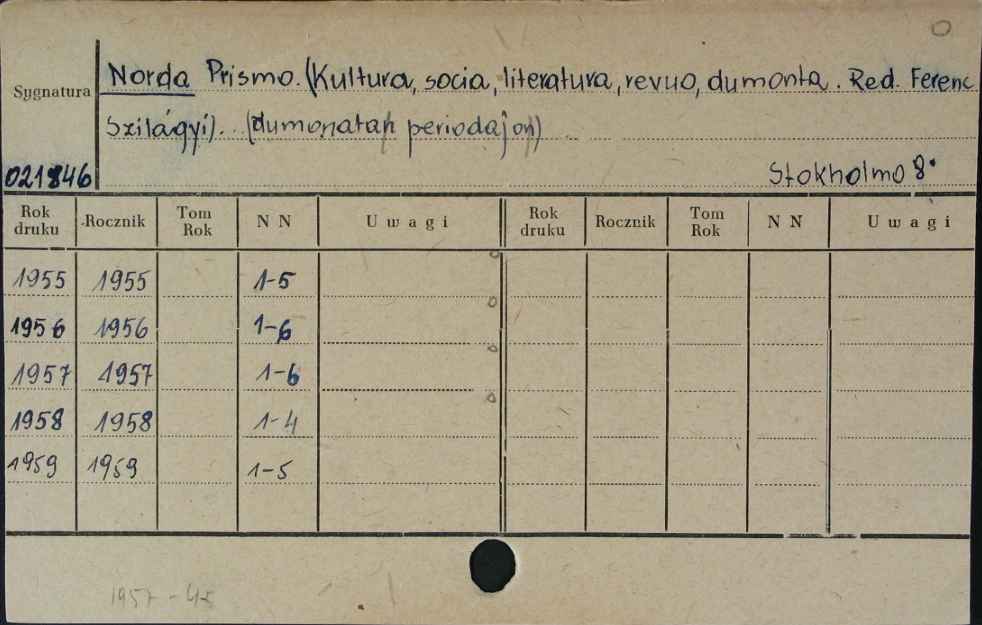 Norda Prismo. (Kultura, socia, literatura, revuo, dumonta. Red. Ferenc
Sygnatura
Szilágyi). (dumonatan periodajon)
021846
Stokholmo 8°
Rok druku Rocznik Tom Rok N N Uwagi Rok druku Rocznik Tom Rok N N Uwagi
1955 1955 1-5
1956 1956 1-6
1957 1957 1-6
1958 1958 1-4
1959 1959 1-5